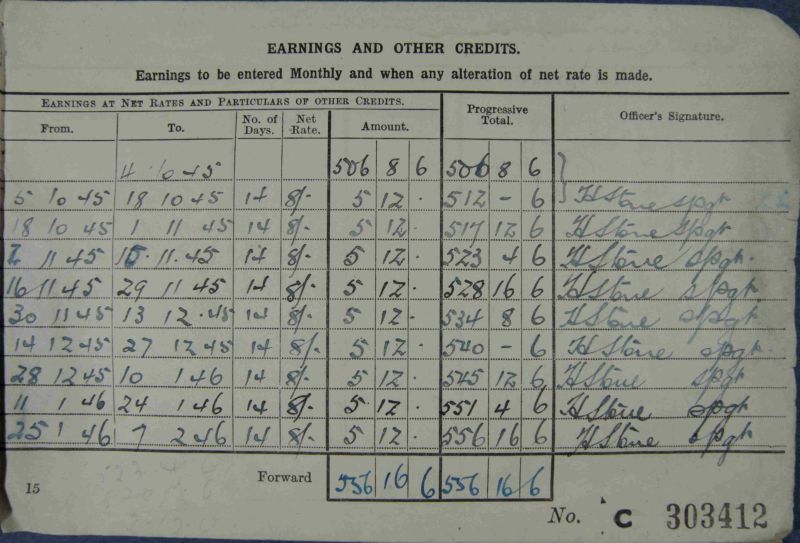 EARNINGS AND OTHER CREDITS.
Earnings to be entered Monthly and when any alteration of net rate is made.
EARNINGS AT NET RATES AND PARTICULARS OF OTHER CREDITS. Progressive Total. Officer's Signature.
From. To. No. of Days. Net Rate. Amount.
4 10 45 506 8 6 506 8 6
5 10 45 18 10 45 14 8/- 5 12 · 512 - 6 H Stone spgt
18 10 45 1 11 45 14 8/- 5 12 · 517 12 6 H Stone spgt
2 11 45 15 · 11 · 45 14 8/- 5 12 · 523 4 6 H Stone spgt.
16 11 45 29 11 45 14 8/- 5 12 · 528 16 6 H Stone spgt.
30 11 45 13 12 · 45 14 8/- 5 12 · 534 8 6 H Stone spgt
14 12 45 27 12 45 14 8/- 5 12 · 540 - 6 H Stone spgt.
28 12 45 10 1 46 14 8/- 5 12 · 545 12 6 H Stone spgt
11 1 46 24 1 46 14 8/- 5 12 · 551 4 6 H Stone spgt
25 1 46 7 2 46 14 8/- 5 12 · 556 16 6 H Stone spgt
Forward 556 16 6 556 16 6
15
No. C 303412